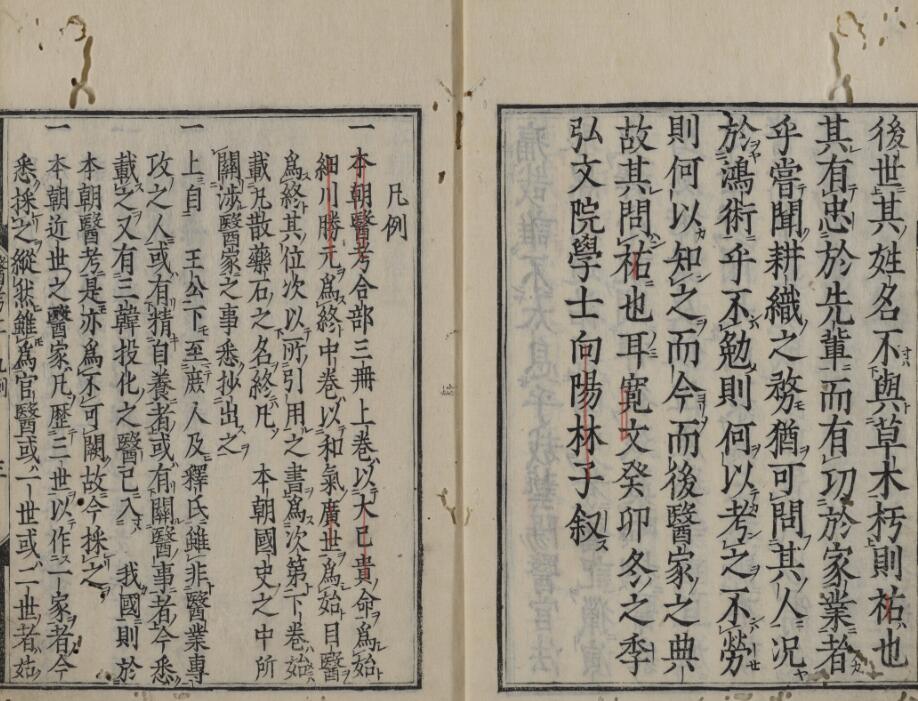 後世其姓名不與草木朽則祐也
其有忠於先輩而有功於家業者
乎嘗聞耕織之務猶可問其人况
於鴻術乎不勉則何以考之不勞
則何以知之而今而後醫家之典
故其問祐也耳寛文癸卯冬之季
弘文院學士向陽林子叙
凡例
一本朝醫考合部三冊上卷以大己貴命爲始
細川勝元爲終中卷以和氣廣世爲始目醫
爲終其位次以所引用之書爲次第下卷始
載凡散藥石之名終凡 本朝國史之中所
關涉醫家之事悉抄出之
一上自 王公下至庶人及釋氏雖非醫業專
攻之人或有精自養者或有關醫事者今悉
載之又有三韓投化之醫已入 我國則於
本朝醫考是亦爲不可闕故今採之
一本朝近世之醫家凡歴三世以作一家者今
悉採之縱然雖爲官醫或一世或二世者姑